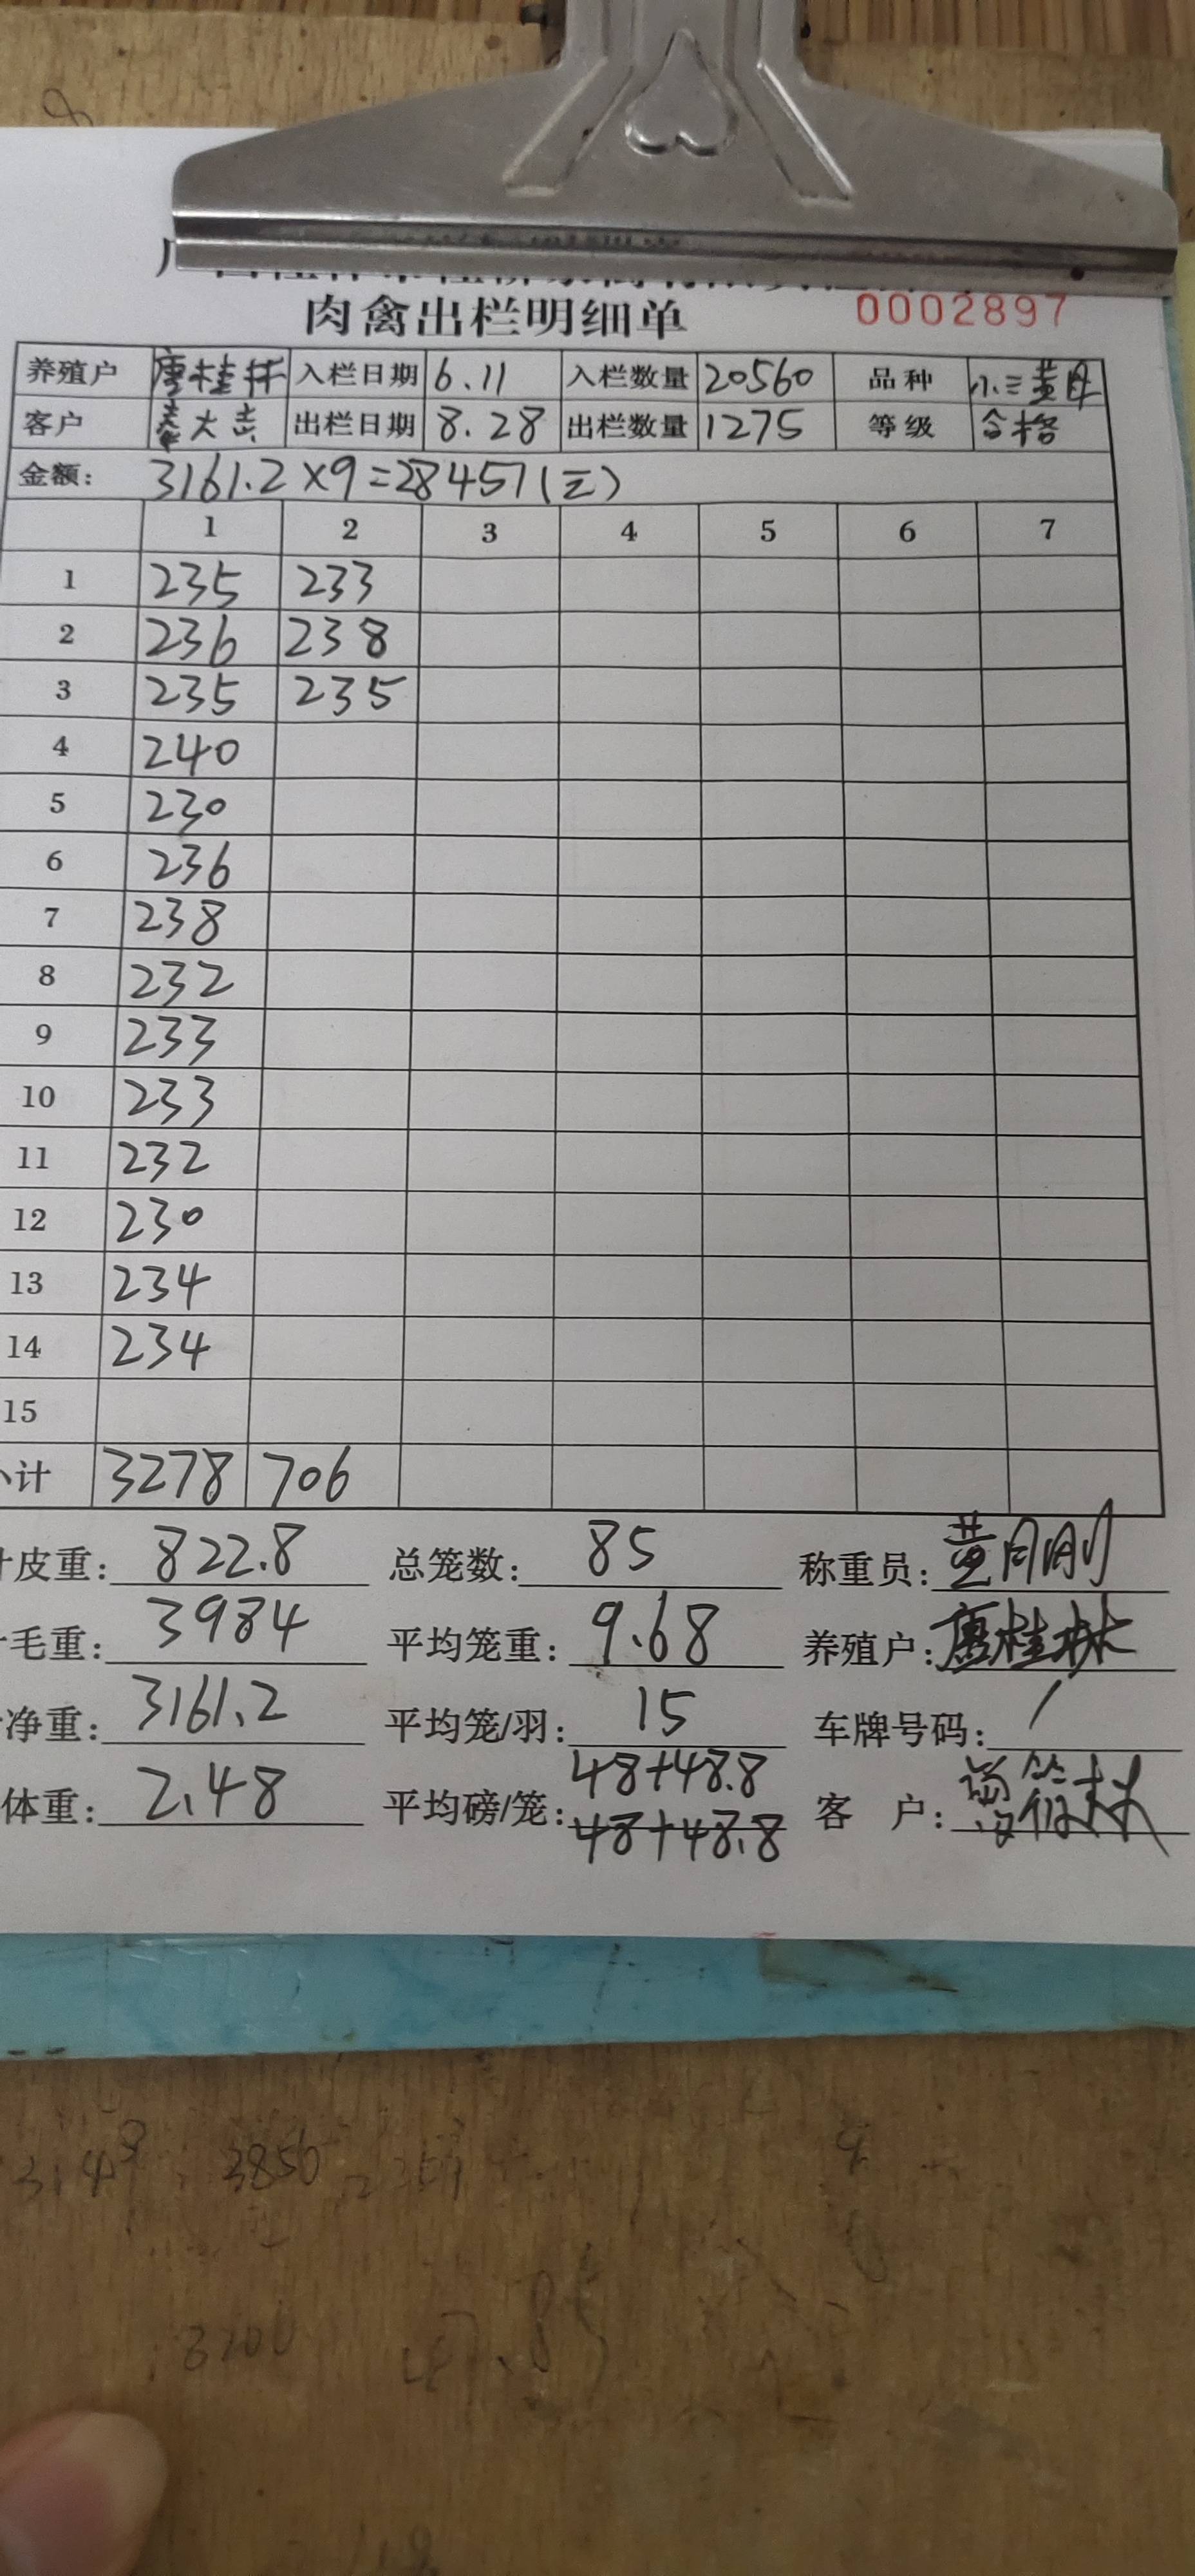 肉禽出栏明细单 0002897
养殖户 唐桂林 入栏日期 6.11 入栏数量 20560 品种 小三黄母
客户 秦大吉 出栏日期 8.28 出栏数量 1275 等级 合格
金额: 3161.2×9=28451(元)
1 2 3 4 5 6 7
1 235 233
2 236 238
3 235 235
4 240
5 230
6 236
7 238
8 232
9 233
10 233
11 232
12 230
13 234
14 234
15
小计 3278 706
计皮重: 822.8 总笼数: 85 称重员: 黄刚
毛重: 3984 平均笼重: 9.68 养殖户: 唐桂林
净重: 3161.2 平均笼/羽: 15 车牌号码: /
体重: 2.48 平均磅/笼: 48+48.8 客 户:
48+48.8
3850